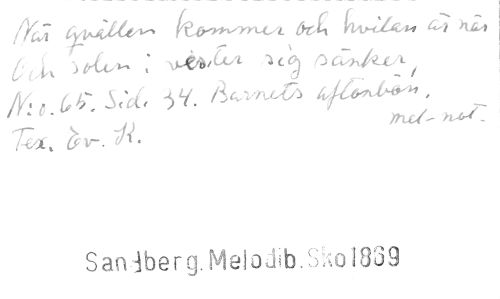 När qvällen kommer och hvilan är när
Och solen i vester sig sänker,
N:o. 65. Sid. 34. Barnets aftonbön.
mel-not.
Tex. Ev. K.
Sandberg. Melodib. Skol869